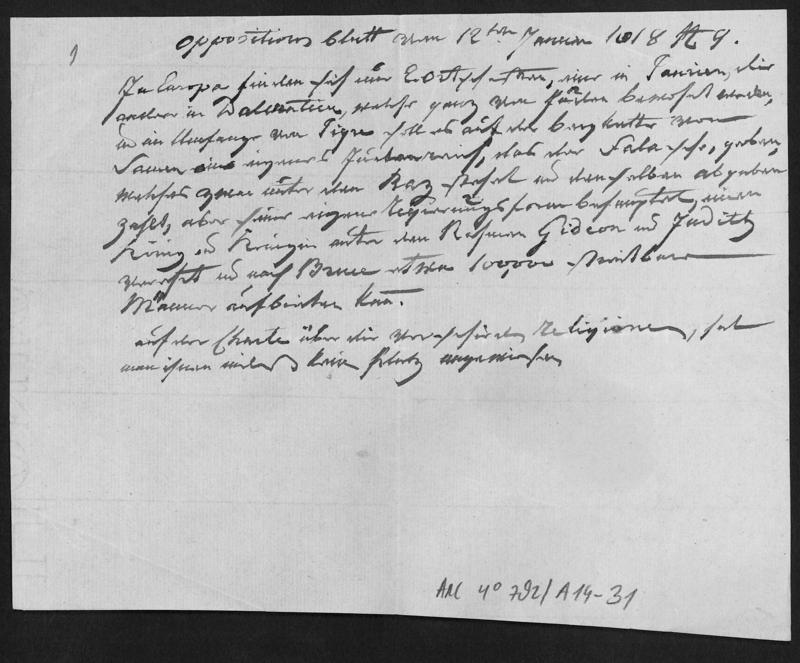 Oppositions blatt vom 12ten Januar 1818 No 9.
In Europa finden sich nur 2 Ortschaften, eine in Taurien, die
andere in Dalmatien, welche ganz von Juden bewohnt werden,
und im Umfange von Tigre soll es auf der Bergkette von
Samen ein eigenes Judenreich, das der Falascha, geben,
welches zwar unter dem Raz steht und demselben abgaben
zahlt, aber seine eigene Regierungsform behauptet, einen
König und Königin unter den Nahmen Gideon und Judith
verehrt und nach Bruce etwa 100,000 streitbare
Männer aufbieten kan.
auf der Charte über die verschieden Religionen, hat
man ihnen indess kein Platz angewiesen
AM 4° 792/A14-31